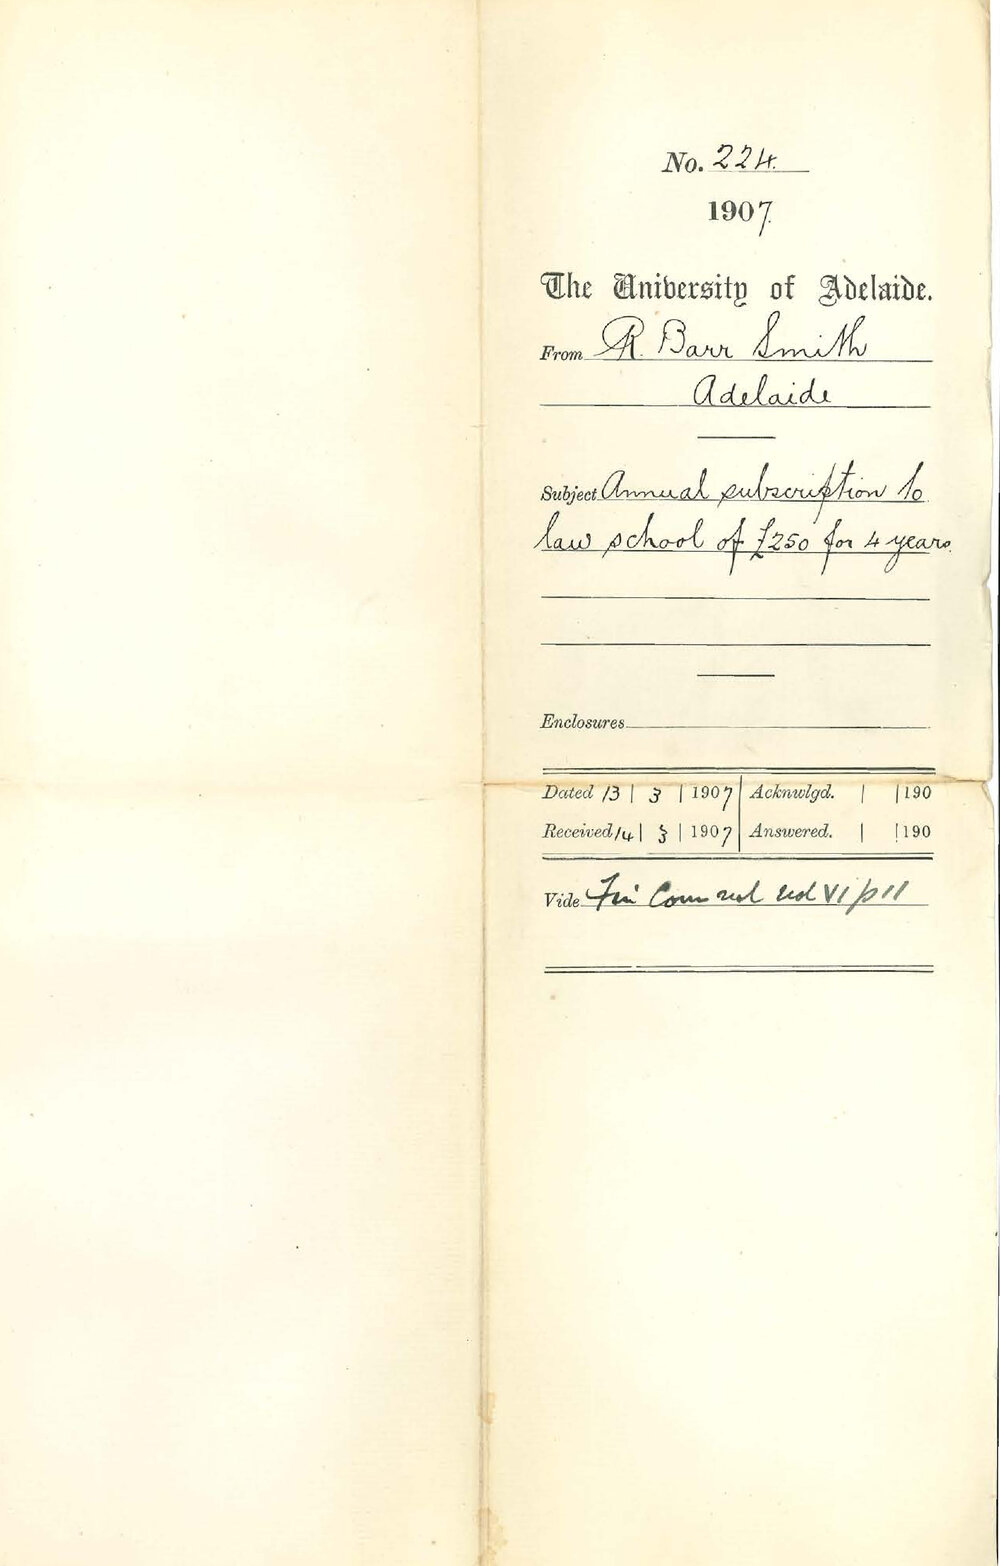 No. 224.
1907.
The University of Adelaide.
From R. Barr Smith
Adelaide
Subject Annual subscription to
law school of £250 for 4 years.
Enclosures
Dated 13 | 3 | 1907 Acknwlgd. | | 190
Received 14 | 3 | 1907 Answered. | | 190
Vide Fin Com vol VI p 11